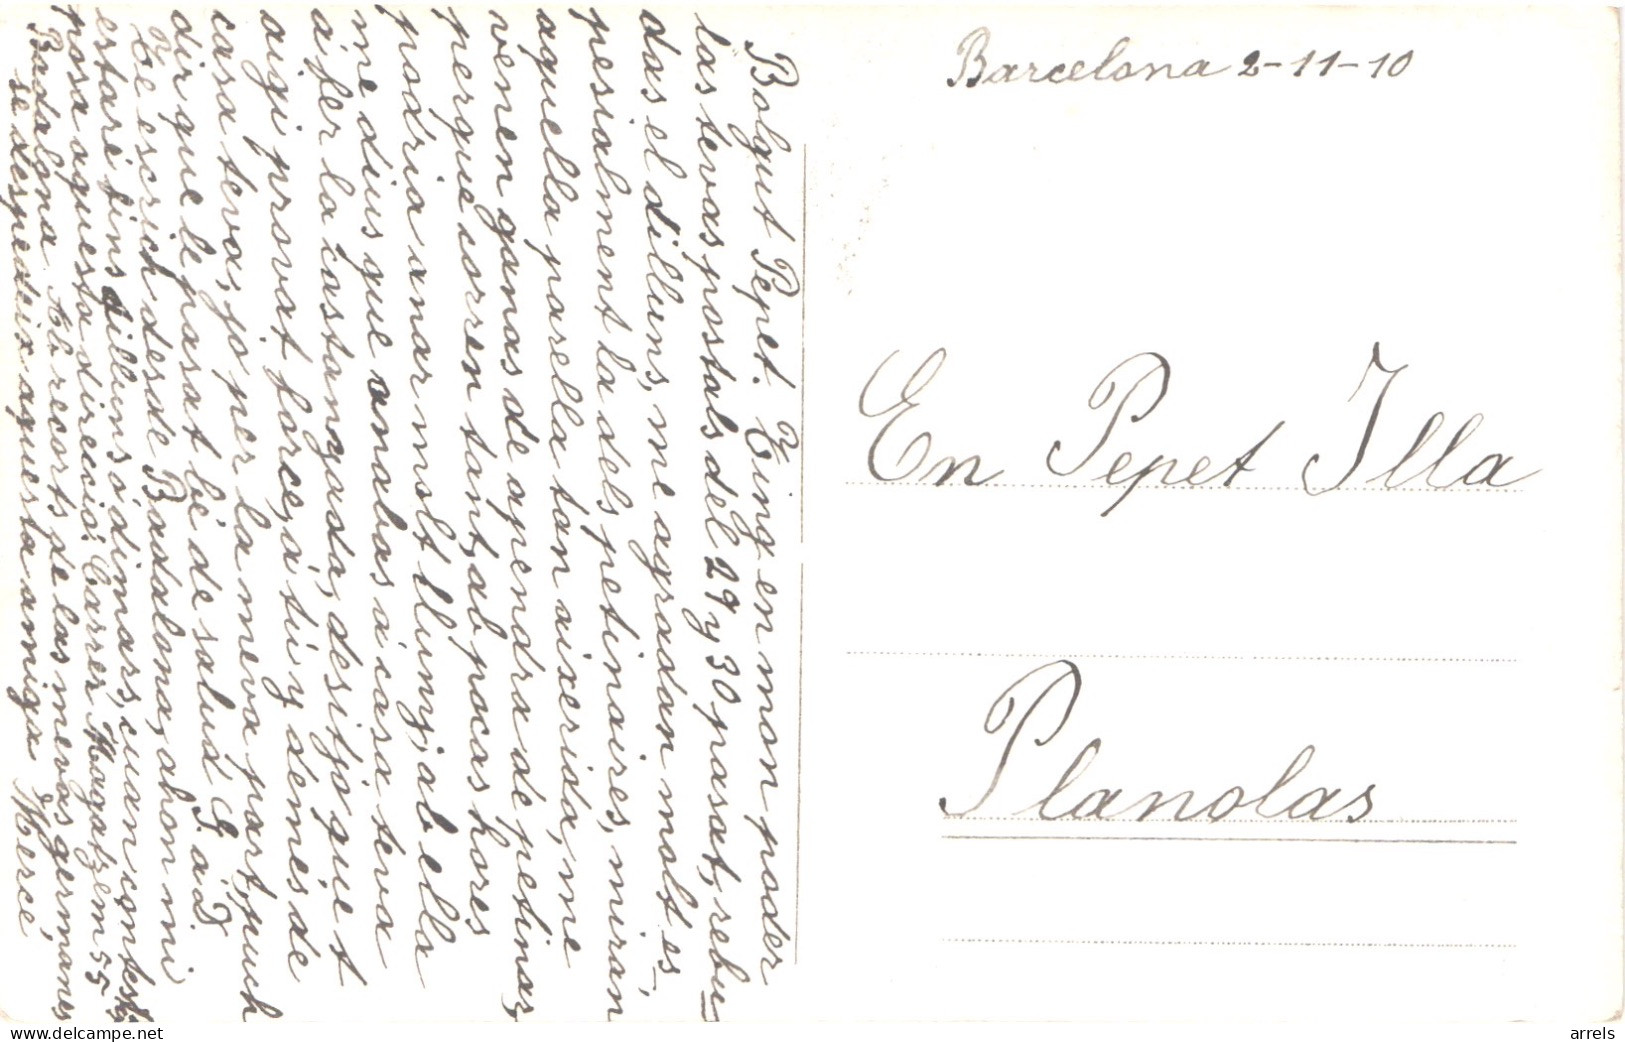 Barcelona 2-11-10
En Pepet Illa
Planolas
Bolgut Pepet. Ting en mon poder
las tevas postals del 29 y 30 pasat, rebu-
das el dilluns, me agradan molt es-
pesialment la dels petinaires, miran
aquella parella tan aixerida, me
venen ganas de apendra de petinar,
perque coren tant, ab pocas hores
podria anar molt lluny; ab ella
me dius que anabas á casa teva
á fer la castanyada, desitjo que t
aigi provat força, á tú y demés de
casa teva, jo per la meva part, puch
dir que le pasat bé de salud G. á D.
Te escrich desde Badalona, ahon mi
estaré fins dilluns ó dimars, cuan contestis
posa aquesta direcció: Carrer Magatzem 55
Badalona. Ab recorts de las mevas germanes
se despedeix aquesta amiga Mercé,
arrels
https://www.delcampe.net